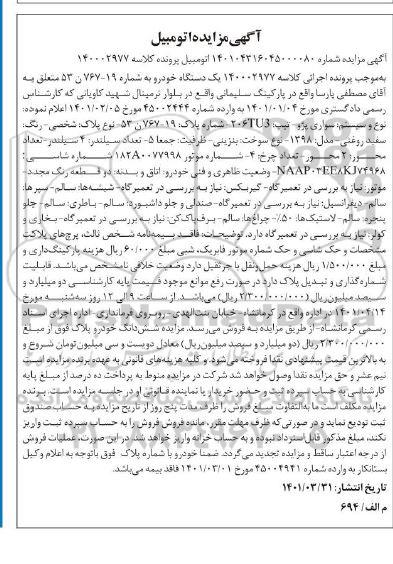 آگهی مزایده اتومبیل
آگهی مزایده شماره ۱۴۰۱۰۴۳۱۶۰۴۵۰۰۰۰۸۰ اتومبیل پرونده کلاسه ۱۴۰۰۰۲۹۷۷
به‌موجب پرونده اجرائی کلاسه ۱۴۰۰۰۲۹۷۷ یک دستگاه خودرو به شماره ۱۹-۷۶۷ ن ۵۳ متعلق به
آقای مصطفی پارسا واقع در پارکینگ سلیمانی واقع در بلوار نرمپتال شهید کاویانی که کارشناس
رسمی دادگستری مورخ ۱۴۰۱/۰۱/۰۴ به وارده شماره ۴۵۰۰۲۴۴۴ مورخ ۱۴۰۱/۰۲/۰۵ اعلام نموده:
نوع و سیستم: سواری پژو- تیپ: 206TU3- شماره پلاک: ۱۹-۷۶۷ ن ۵۳- نوع پلاک: شخصی- رنگ:
سفید روغنی- مدل: ۱۳۹۸- نوع سوخت: بنزینی- ظرفیت: جمعا ۵- تعداد سیلندر: ۴ سیلندر- تعداد
محور: ۲ محور- تعداد چرخ: ۴- شماره موتور ۱۸۲A۰۰۷۷۹۹۸ شماره شاسی:
NAAP۰۳EE۸KJ۷۴۹۶۸- وضعیت ظاهری و فنی خودرو: اتاق و بدنه: دو قطعه رنگ مجدد-
موتور: نیاز به بررسی در تعمیرگاه- گیربکس: نیاز به بررسی در تعمیرگاه- شیشه‌ها: سالم- سپرها:
سالم- دیفرانسیل: نیاز به بررسی در تعمیرگاه- صندلی و جلو داشبورد: سالم- باطری: سالم- جلو
پنجره: سالم- لاستیک‌ها: ۵۰٪- چراغ‌ها: سالم- برف‌پاک‌کن: نیاز به بررسی در تعمیرگاه- بخاری و
کولر: نیاز به بررسی در تعمیرگاه دارد. توضیحات: فاقد بیمه‌نامه شخص ثالث، پرچ‌های پلاک
مشخصات و حک شاسی و حک شماره موتور فابریک، شبی مبلغ ۶۰/۰۰۰ ریال هزینه پارکینگ‌داری و
مبلغ ۱/۵۰۰/۰۰۰ ریال هزینه حمل‌ونقل با جرثقیل دارد وضعیت خلافی نامشخص می‌باشد. قابلیت
شماره‌گذاری و تبدیل پلاک دارد در صورت رفع موانع موجود قیمت پایه کارشناسی دو میلیارد و
سیصد میلیون ریال (۲/۳۰۰/۰۰۰/۰۰۰ ریال) می‌باشد. از ساعت ۹ الی ۱۲ روز سه‌شنبه مورخ
۱۴۰۱/۰۴/۱۴ در اداره واقع در کرمانشاه- خیابان بنت‌الهدی- روبروی فرمانداری- اداره اجرای اسناد
رسمی کرمانشاه- از طریق مزایده به فروش می‌رسد. مزایده شش‌دانگ خودرو پلاک فوق از مبلغ
۲/۳۰۰/۰۰۰/۰۰۰ ریال (دو میلیارد و سیصد میلیون ریال) معادل دویست و سی میلیون تومان شروع و
به بالاترین قیمت پیشنهادی نقدا فروخته می‌شود. و کلیه هزینه‌های قانونی به عهده برنده مزایده است
نیم عشر و حق مزایده نقدا وصول خواهد شد شرکت در مزایده منوط به پرداخت ده درصد از مبلغ پایه
کارشناسی به حساب سپرده ثبت و حضور خریدار یا نماینده قانونی او در جلسه مزایده است. برنده
مزایده مکلف است مابه‌التفاوت مبلغ فروش را ظرف مدت پنج روز از تاریخ مزایده به حساب صندوق
ثبت تودیع نماید و در صورتی که ظرف مهلت مقرر، مانده فروش فروش را به حساب سپرده ثبت واریز
نکند، مبلغ مذکور قابل استرداد نبوده و به حساب خزانه واریز خواهد شد. در این صورت، عملیات فروش
از درجه اعتبار ساقط و مزایده تجدید می‌گردد. ضمنا خودرو با شماره پلاک فوق باتوجه به اعلام وکیل
بستانکار به وارده شماره ۴۵۰۰۴۹۴۱ مورخ ۱۴۰۱/۰۳/۰۱ فاقد بیمه می‌باشد.
تاریخ انتشار: ۱۴۰۱/۰۳/۳۱
م الف/ ۶۹۴